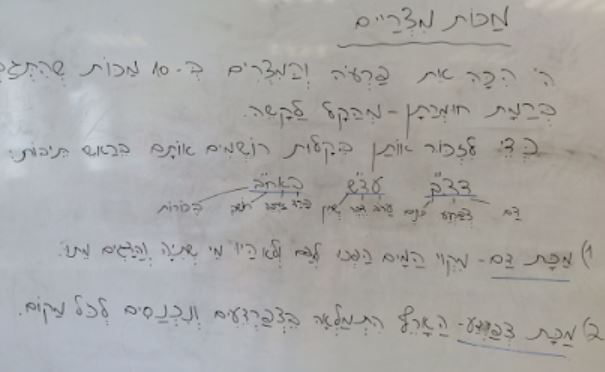 מַכּוֹת מִצְרַיִם
ה' הִכָּה אֶת פַּרְעֹה וְהַמִּצְרִים בְּ-10 מַכּוֹת
בְּרַמַּת חוּמְרָתָן - מֵהַקַּל לַקָּשֶׁה.
כְּדֵי לִזְכּוֹר אוֹתָן בְּקַלּוּת רוֹשְׁמִים אוֹתָם בְּרָאשֵׁי תֵּיבוֹת:
דְּצַ"ךְ עֲדַ"שׁ בְּאַחַ"ב
דם צפרדע כנים ערוב דבר שחין ברד ארבה חושך בכורות
1) מַכַּת דָּם - הַמַּיִם הָפְכוּ לְדָם
2) מַכַּת צְפַרְדֵּעַ - הָאָרֶץ הִתְמַלְּאָה בִּצְפַרְדְּעִים וְנִכְנָסִים לְכָל מָקוֹם.